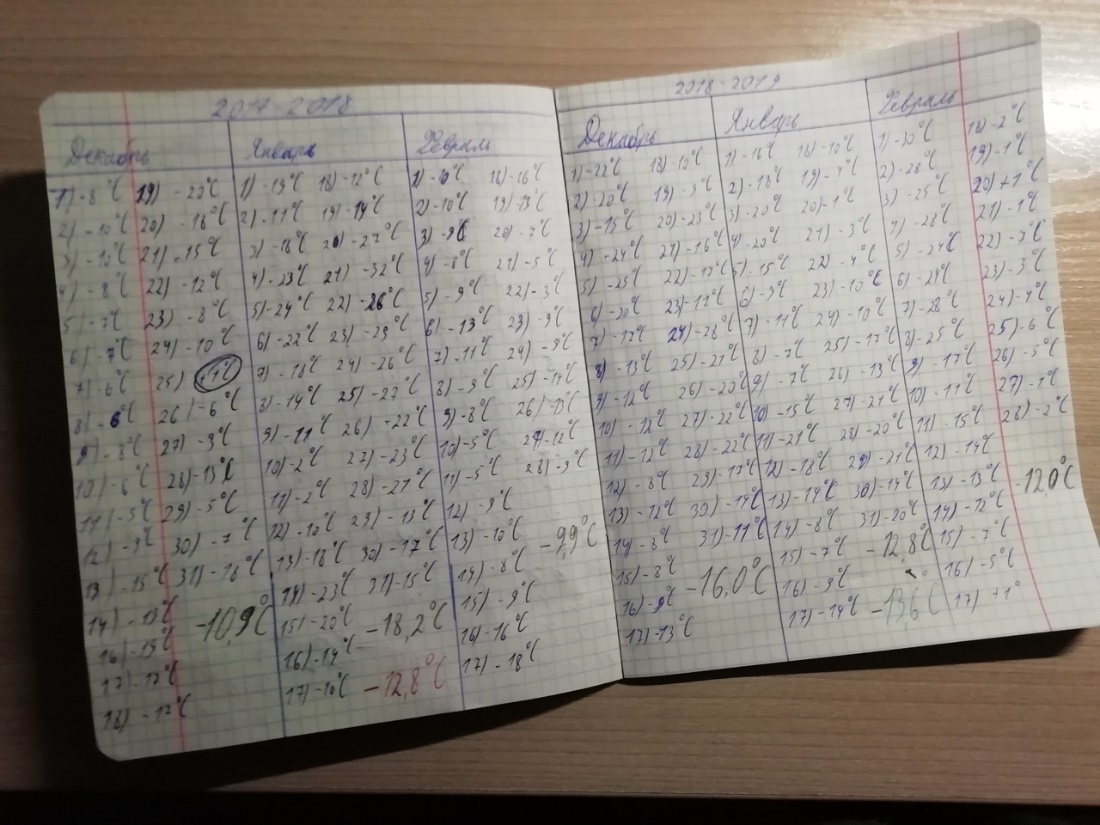 2017-2018
Декабрь
1) -8°C
2) -10°C
3) -10°C
4) -8°C
5) -7°C
6) -7°C
7) -6°C
8) -6°C
9) -8°C
10) -6°C
11) -5°C
12) -9°C
13) -15°C
14) -19°C
16) -19°C
17) -17°C
18) -17°C
19) -20°C
20) -18°C
21) -15°C
22) -12°C
23) -8°C
24) -10°C
25) +1°C
26) -6°C
27) -3°C
28) -13°C
29) -5°C
30) -7°C
31) -18°C
-10,9°C
Январь
1) -19°C
2) -11°C
3) -16°C
4) -23°C
5) -24°C
6) -22°C
7) -18°C
8) -14°C
9) -11°C
10) -2°C
11) -2°C
12) -10°C
13) -18°C
14) -23°C
15) -20°C
16) -14°C
17) -10°C
18) -12°C
19) -14°C
20) -27°C
21) -32°C
22) -26°C
23) -29°C
24) -26°C
25) -27°C
26) -22°C
27) -23°C
28) -21°C
29) -13°C
30) -17°C
31) -15°C
-18,2°C
-12,8°C
Февраль
1) -10°C
2) -10°C
3) -9°C
4) -8°C
5) -9°C
6) -13°C
7) -11°C
8) -9°C
9) -8°C
10) -5°C
11) -5°C
12) -9°C
13) -10°C
14) -8°C
15) -9°C
16) -16°C
17) -18°C
18) -16°C
19) -13°C
20) -7°C
21) -5°C
22) -3°C
23) -9°C
24) -9°C
25) -14°C
26) -13°C
27) -12°C
28) -9°C
-9,9°C
2018-2019
Декабрь
1) -22°C
2) -20°C
3) -15°C
4) -24°C
5) -25°C
6) -20°C
7) -17°C
8) -13°C
9) -12°C
10) -12°C
11) -12°C
12) -8°C
13) -12°C
14) -8°C
15) -8°C
16) -9°C
17) -13°C
18) -10°C
19) -9°C
20) -23°C
21) -16°C
22) -17°C
23) -11°C
24) -28°C
25) -21°C
26) -20°C
27) -22°C
28) -22°C
29) -17°C
30) -14°C
31) -11°C
-16,0°C
Январь
1) -16°C
2) -18°C
3) -20°C
4) -20°C
5) -15°C
6) -9°C
7) -11°C
8) -7°C
9) -7°C
10) -15°C
11) -21°C
12) -18°C
13) -14°C
14) -8°C
15) -7°C
16) -9°C
17) -14°C
18) -10°C
19) -7°C
20) -1°C
21) -3°C
22) -4°C
23) -10°C
24) -10°C
25) -17°C
26) -13°C
27) -21°C
28) -20°C
29) -21°C
30) -14°C
31) -20°C
-12,8°C
-13,6°C
Февраль
1) -30°C
2) -28°C
3) -25°C
4) -28°C
5) -24°C
6) -28°C
7) -28°C
8) -25°C
9) -17°C
10) -11°C
11) -15°C
12) -14°C
13) -13°C
14) -12°C
15) -7°C
16) -5°C
17) +1°
18) -2°C
19) -1°C
20) +1°C
21) -1°C
22) -7°C
23) -3°C
24) -4°C
25) -6°C
26) -5°C
27) -1°C
28) -2°C
-12,0°C